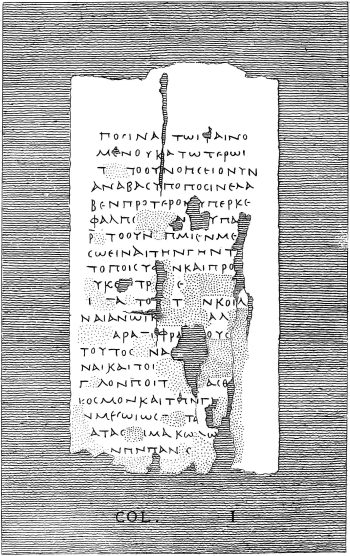 ΠΟϹΙΝΑ ΤΩΙ ΦΑΙΝΟ
ΜΕΝΟΥΚΑΤΩΤΕΡΩΙ
Τ ΤΟΟΥΝΟΠϹΕΙΟΝΥΝ
ΑΝΑΒΑϹΥΠΟΠΟϹΙΝΕΑΑ
ΒΕΝΠΡΟΤΕΡΟΝΥΠΕΡΚΕ
ΦΑΛΠϹ ΥΠΑ
Ρ ΤΟΟΥΝ ΠΜΙϹΝΜΕ
ϹΩΕΙΝΑΙΤΗΝΓΗΝΤ
ΤΟΠΟΙϹΥ ΝΚΑΙΠΡΟ
ΥΚΕ ΤΡ Ε
Ι ΤΑ ΤΟ Τ ΝΚΟΙΑ
ΝΑΙΑΝΩΙΚ ΑΛ
ΑΡΑΤΙΦΡΑ ΟΥϹ
ΤΟΥΤΟϹ ΝΑ
ΝΑΙΚΑΙΤΟΙ
Γ ΛΟΝΠΟΙΤ ΑϹΘ
ΚΟϹΜΟΝΚΑΙΤΗΝΓ
ΝΜΕϹΩΙΩϹ ΤΑ
ΑΤΑϹ ΙΜΑΚΩΛΩ
ΝΠΝΠΑΝ Ϲ
COL. I